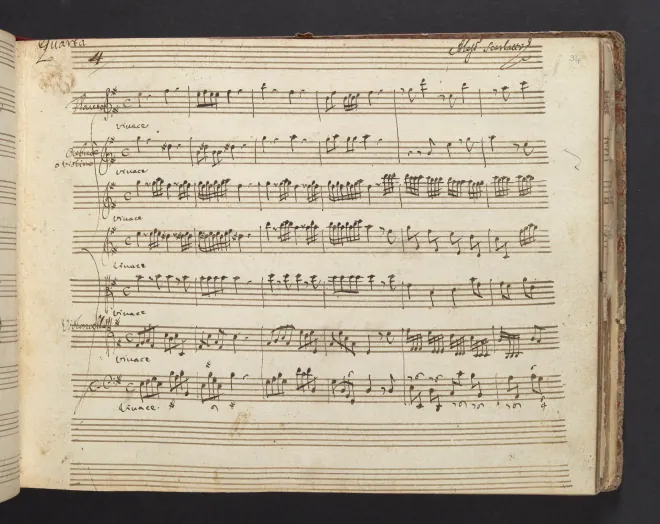 Quarta
4
Aless. Scarlatti
34
Flauto
vivace
o violino
vivace
vivace
vivace
vivace
Violoncello
vivace
vivace